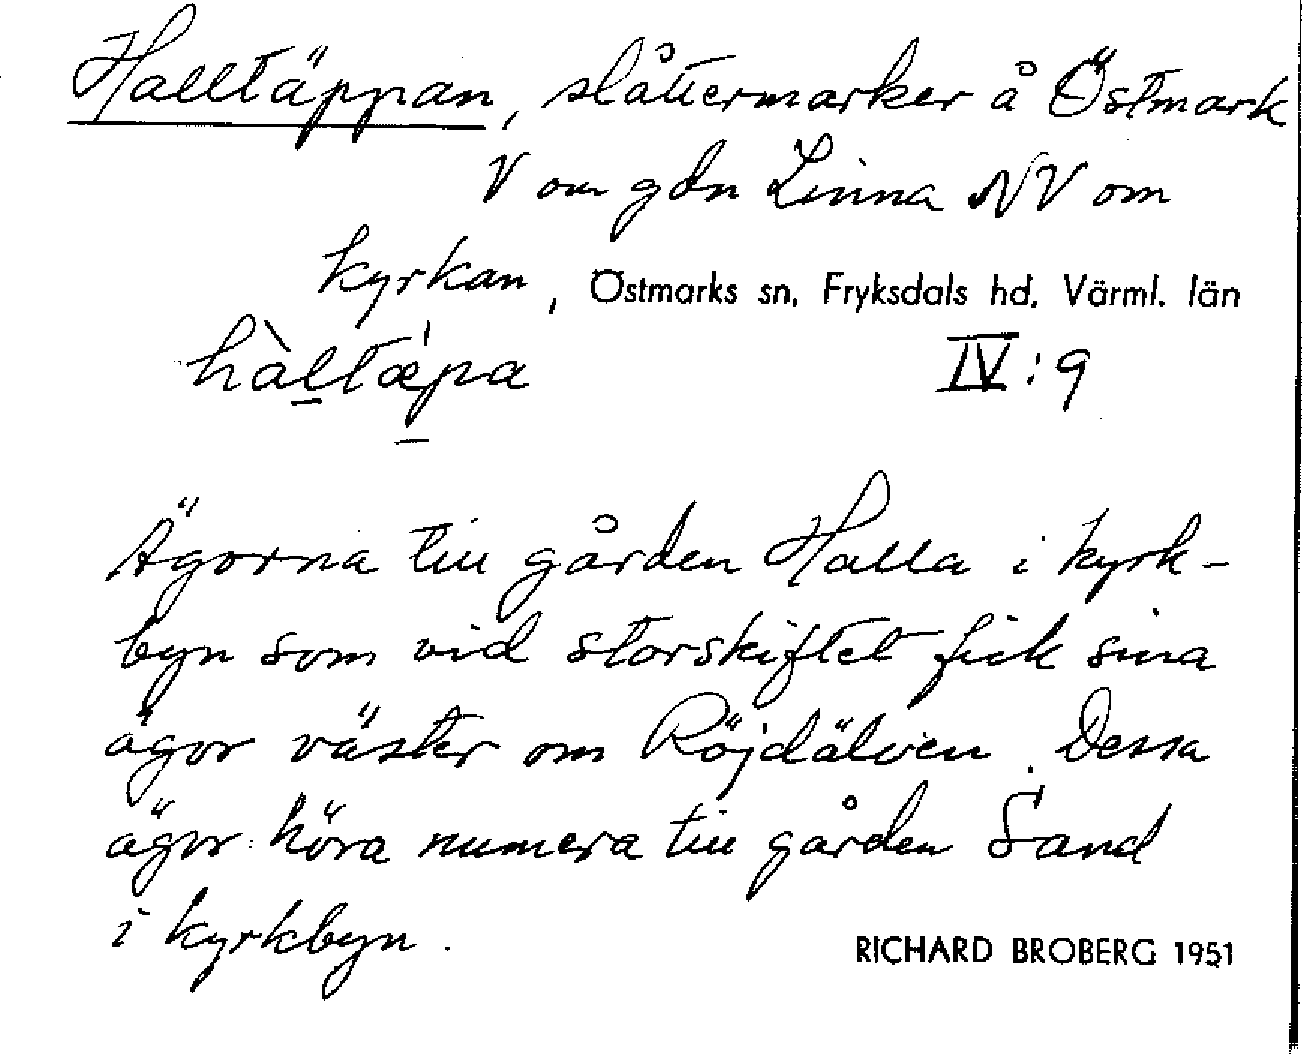 Halltäppan, slåttermarker å Östmark
V om gdn Linna NV om
kyrkan, Östmarks sn, Fryksdals hd. Värml. län
hàltæ̍pa IV:9
Ägorna till gården Halla i kyrk-
byn som vid storskiftet fick sina
ägor väster om Röjdälven. Dessa
ägor höra numera till gården Sand
i kyrkbyn.
RICHARD BROBERG 1951